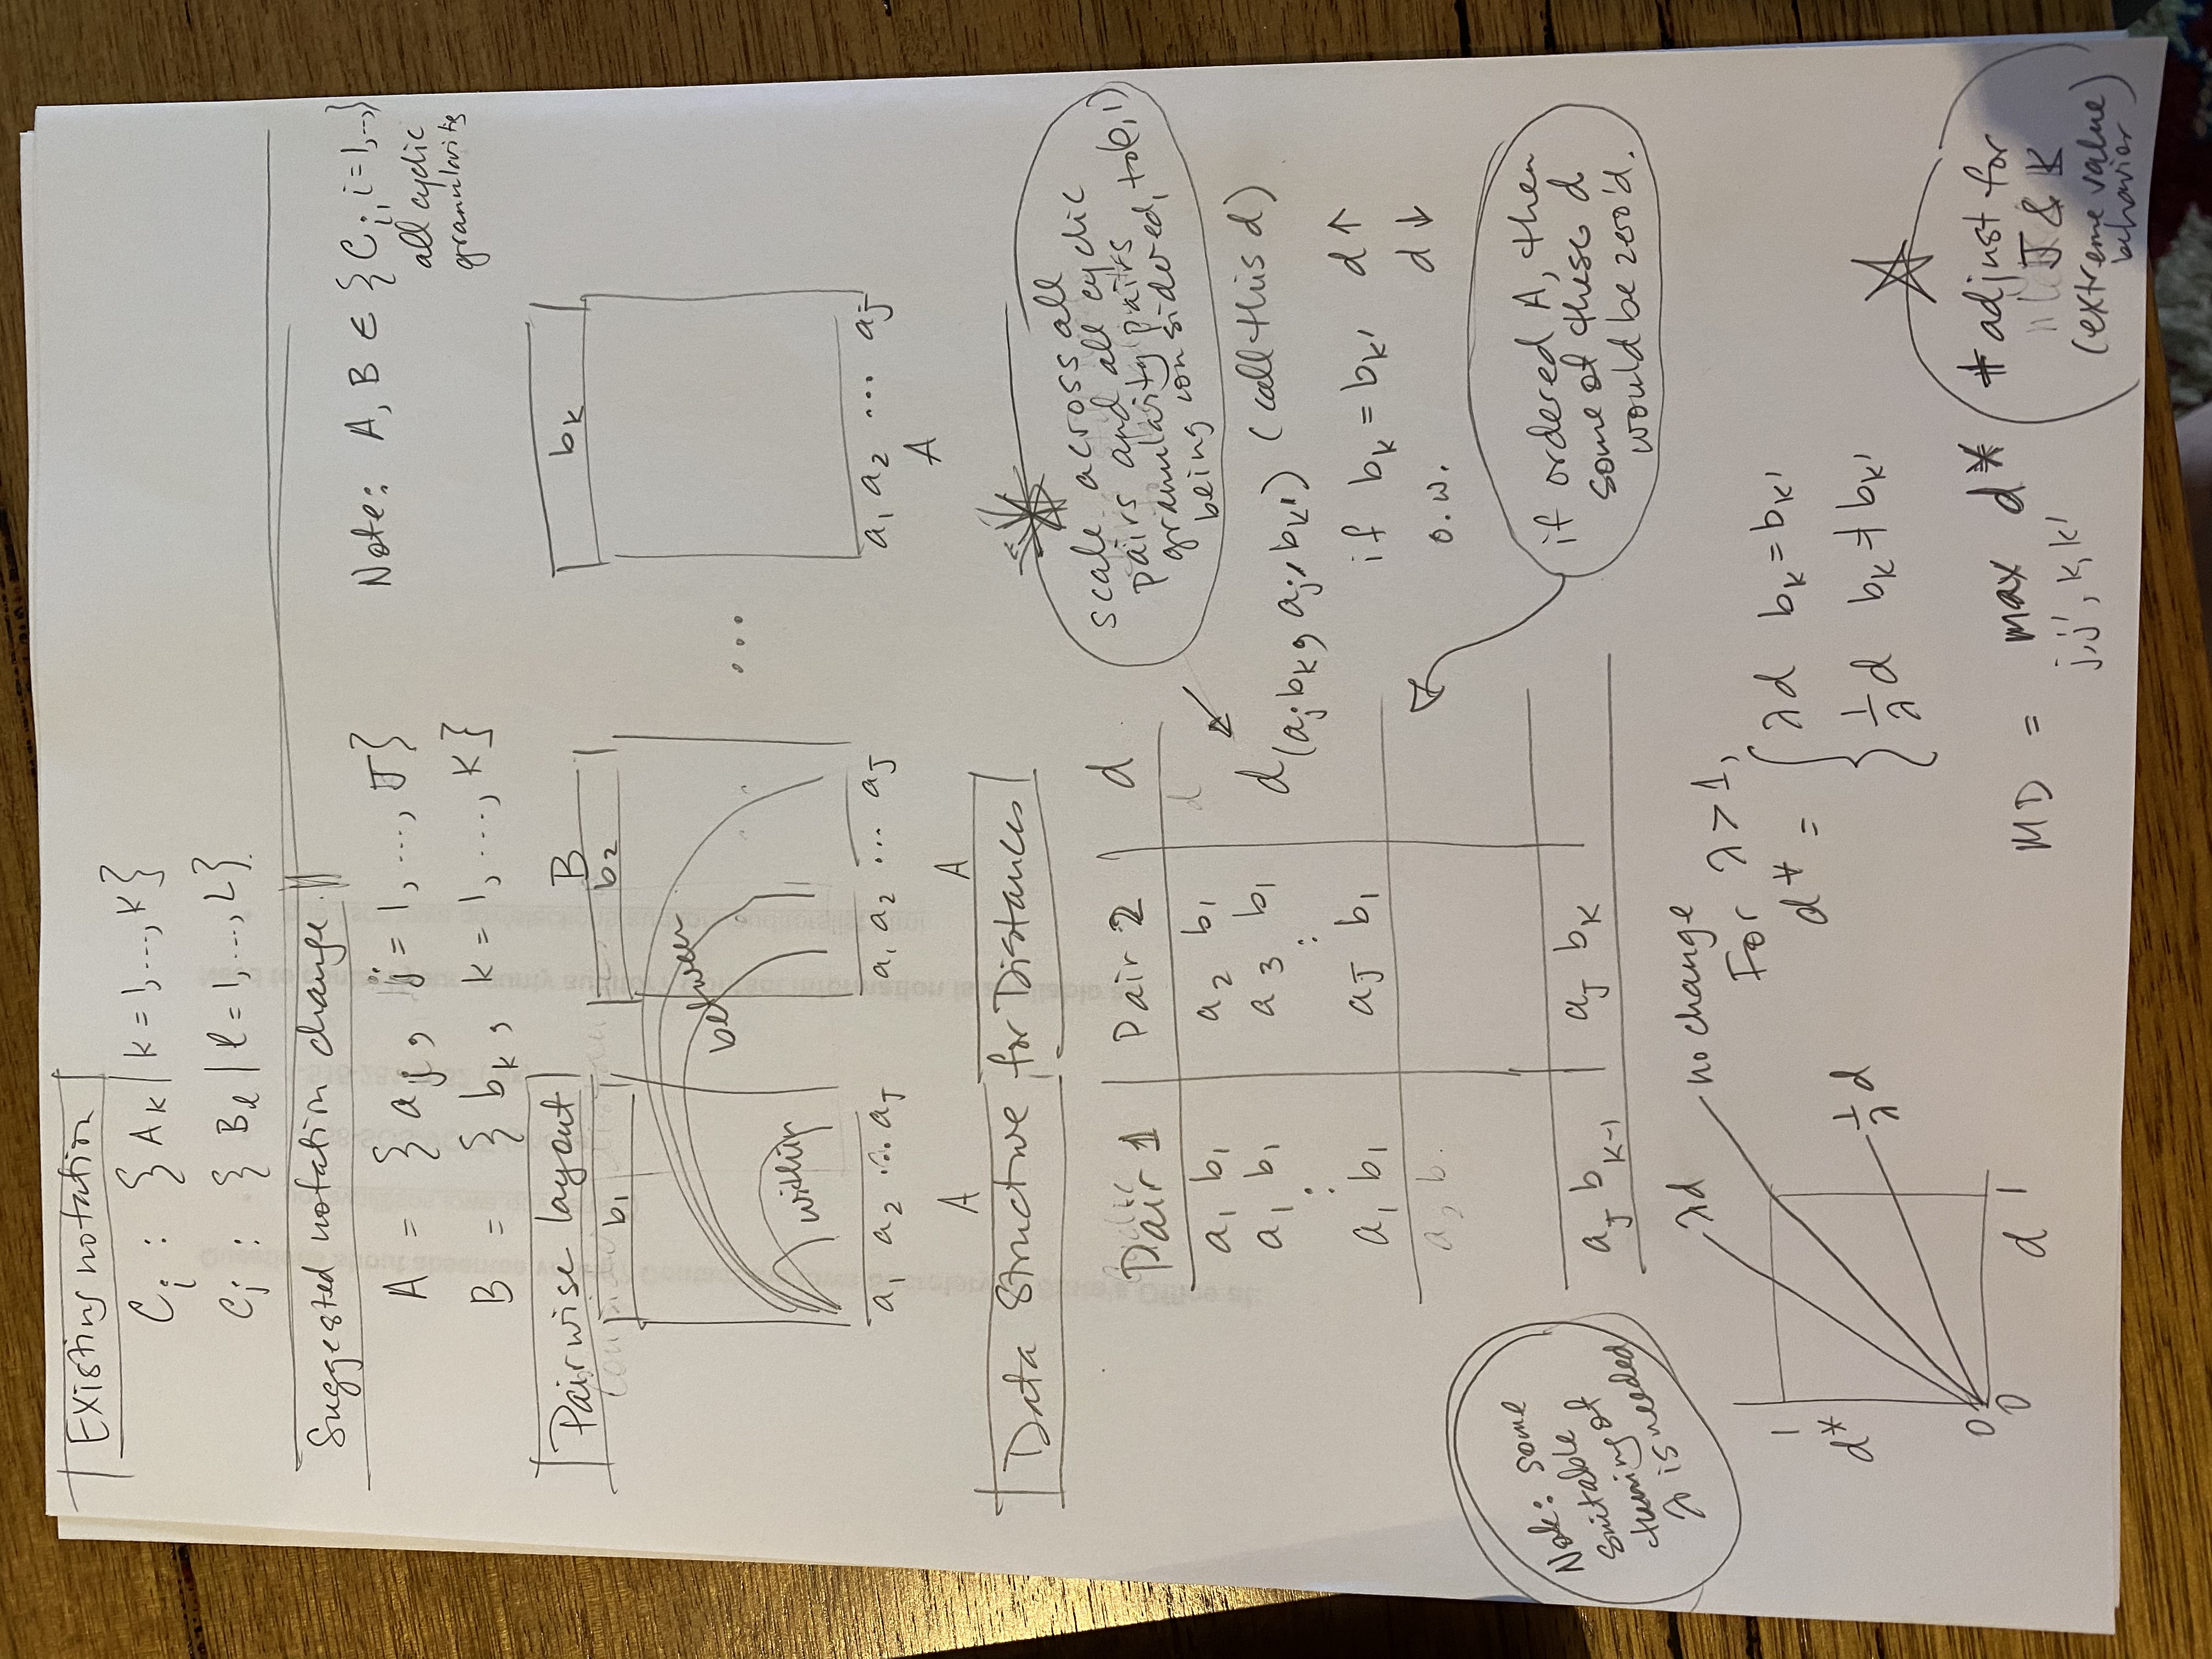 Existing notation
C_i : { A_k | k = 1, ..., K }
C_j : { B_l | l = 1, ..., L }
Suggested notation change
A = { a_j, j = 1, ..., J }
B = { b_k, k = 1, ..., K }
Note: A, B ∈ { C_i, i = 1, .., }
all cyclic
granularitis
Pairwise layout
B
b_1 b_2 ... b_K
between
within
a_1 a_2 ... a_J a_1 a_2 ... a_J a_1 a_2 ... a_J
A A A
Data Structure for Distances
Pair 1 Pair 2 d
a_1 b_1 a_2 b_1
a_1 b_1 a_3 b_1
: :
a_1 b_1 a_J b_1
a_J b_K-1 a_J b_K
scale across all
pairs and all cyclic
granularity pairs
being considered, to (0, 1)
d (a_j b_k, a_j' b_k') (call this d)
if b_k = b_k' d ↑
o.w. d ↓
if ordered A, then
some of these d
would be zero'd.
Note: some
suitable
tuning of
λ is needed
λd
no change
1/λ d
1
d*
0
0 d 1
For λ > 1,
d* = { λd b_k = b_k'
1/λ d b_k ≠ b_k'
MD = max d*
j, j', k, k'
* adjust for
J & K
(extreme value)
behavior